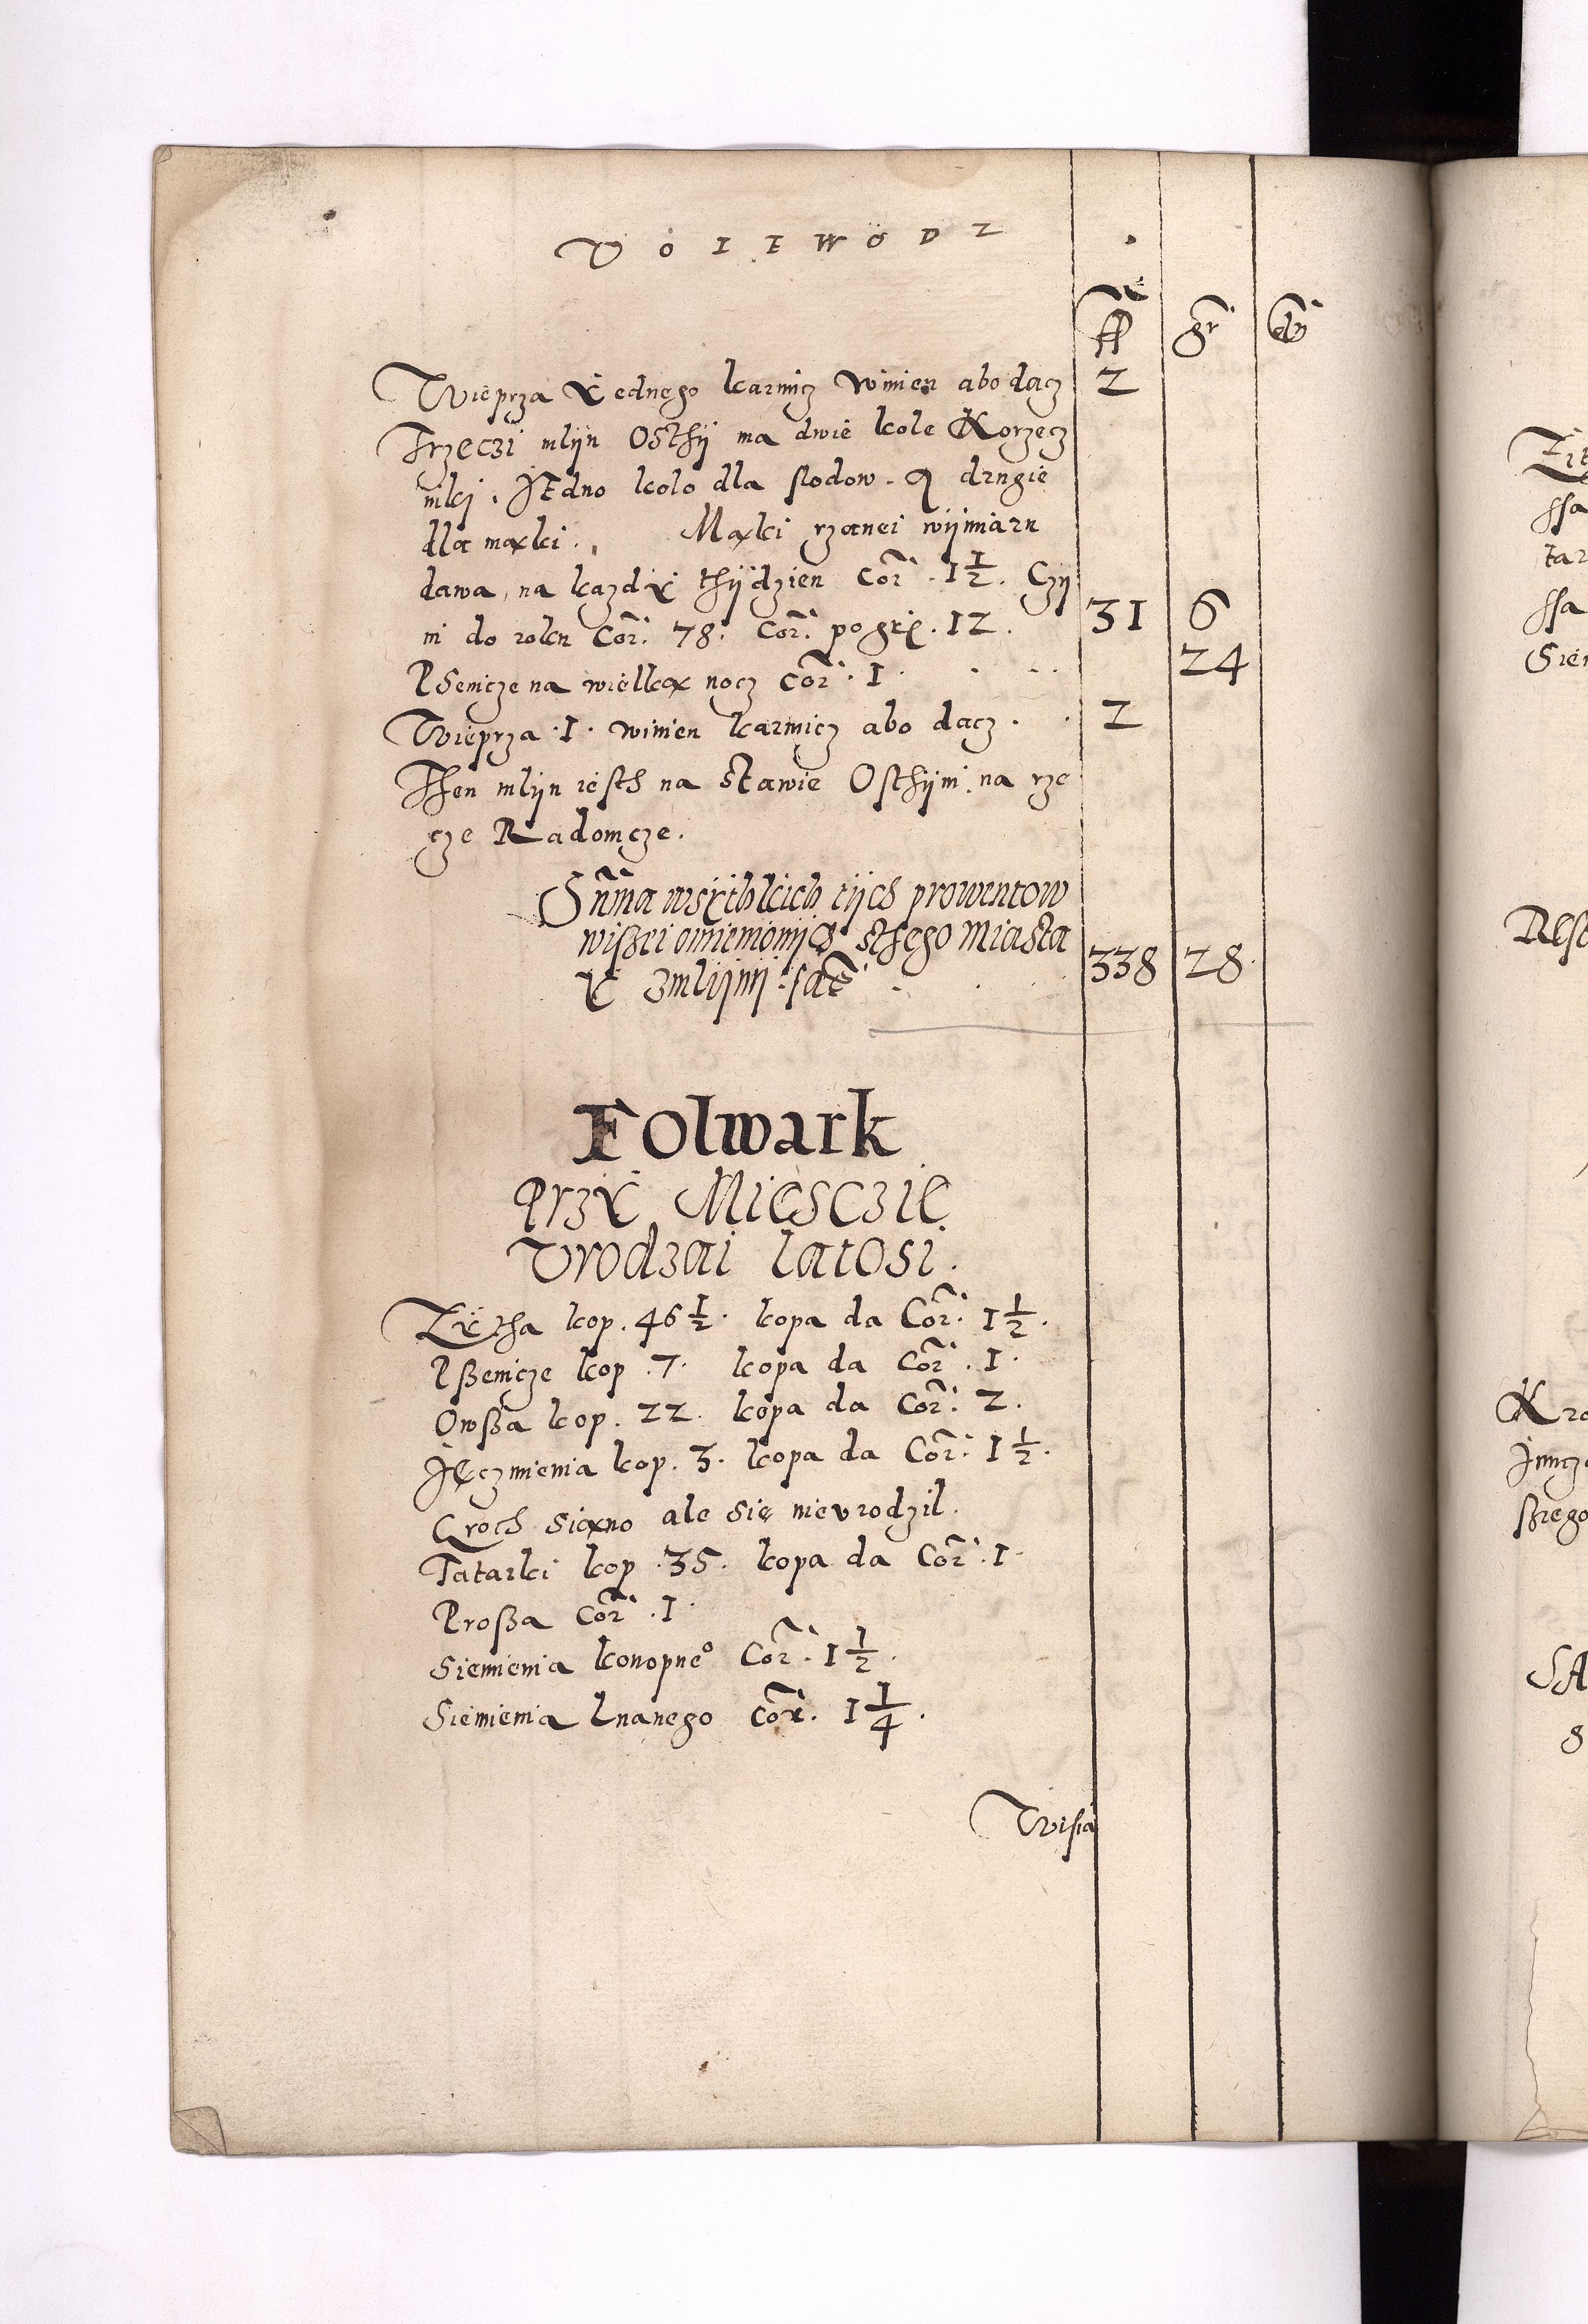 VOIEWODZ
ff gr den
Wieprza Yednego karmicz winien abo dacz 2
Trzeczi mlyn Osthy ma dwie kole Korzecz
mki. Jedno kolo dla slodow. A drugie
dla mąki. Mąki rzanei wymiaru
dawa, na kazdy thydzien Cor. 1 1/2. Czy
ni do roku Cor. 78. Cor. po gr. 12. 31 6
Psenicze na wielkąnocz Cor. 1. 24
Wieprza .1. winien karmicz abo dacz. 2
Then mlyn iesth na stawie Osthym, na rze
cze Radomcze.
Suma wsythkich tych prowentow
wißei omienionych sthego Miasta
Y zmlyny: facit 338 28.
Folwark
Przy Miesczie
Vrodzai latosi.
Zytha kop. 46 1/2. kopa da Cor. 1 1/2.
Pßenicze kop .7. kopa da Cor. 1.
Owßa kop. 22. kopa da Cor. 2.
Jęczmienia kop. 3. kopa da Cor. 1 1/2.
Groch siąno ale się nievrodzil.
Tatarki kop .35. kopa da Cor. 1.
Proßa Cor. 1.
Siemienia konopneo Cor. 1 1/2.
Siemienia lnanego Cor. 1 1/4.
Wisia